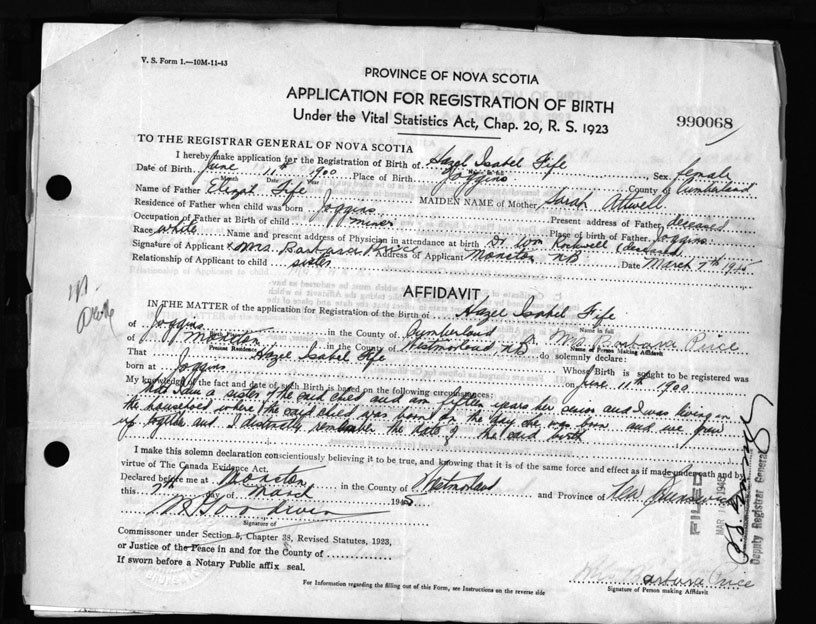 V. S. Form 1.—10M-11-43
PROVINCE OF NOVA SCOTIA
APPLICATION FOR REGISTRATION OF BIRTH
Under the Vital Statistics Act, Chap. 20, R. S. 1923
990068
TO THE REGISTRAR GENERAL OF NOVA SCOTIA
I hereby make application for the Registration of Birth of Hazel Isabel Fife Sex female
Date of Birth June 11th 1900 Place of Birth Joggins County of Cumberland
Month Date Year
Name of Father Fife MAIDEN NAME of Mother Sarah Attwell
Residence of Father when child was born Joggins Present address of Father deceased
Occupation of Father at Birth of child miner Place of birth of Father Joggins
Race white Name and present address of Physician in attendance at birth Dr. Wm Rockwell (deceased)
Signature of Applicant x Mrs. Barbara Price Address of Applicant Moncton NB Date March 7th 1945
Relationship of Applicant to child sister
AFFIDAVIT
IN THE MATTER of the application for the Registration of the Birth of Hazel Isabel Fife
Name in full
of Joggins in the County of Cumberland Mrs Barbara Price
Birth Place Name of Person Making Affidavit
of Moncton in the County of Westmorland NB do solemnly declare:
Present Residence
That Hazel Isabel Fife Whose Birth is sought to be registered was
born at Joggins on June 11th 1900
My knowledge of the fact and date of such Birth is based on the following circumstances:
that I am a sister of the said child and am fifteen years her senior and I was living in
the household where the said child was born on the day she was born and we grew
up together and I distinctly remember the date of the said birth
I make this solemn declaration conscientiously believing it to be true, and knowing that it is of the same force and effect as if made under oath and by
virtue of The Canada Evidence Act.
Declared before me at Moncton in the County of Westmorland and Province of New Brunswick
this 7th day of March 1945
Goodwin
Signature of
Commissoner under Section 5, Chapter 38, Revised Statutes, 1923,
or Justice of the Peace in and for the County of
If sworn before a Notary Public affix seal.
FILED
MAR 1945
Deputy Registrar General
Barbara Price
Signature of Person making Affidavit
For Information regarding the filling out of this Form, see Instructions on the reverse side